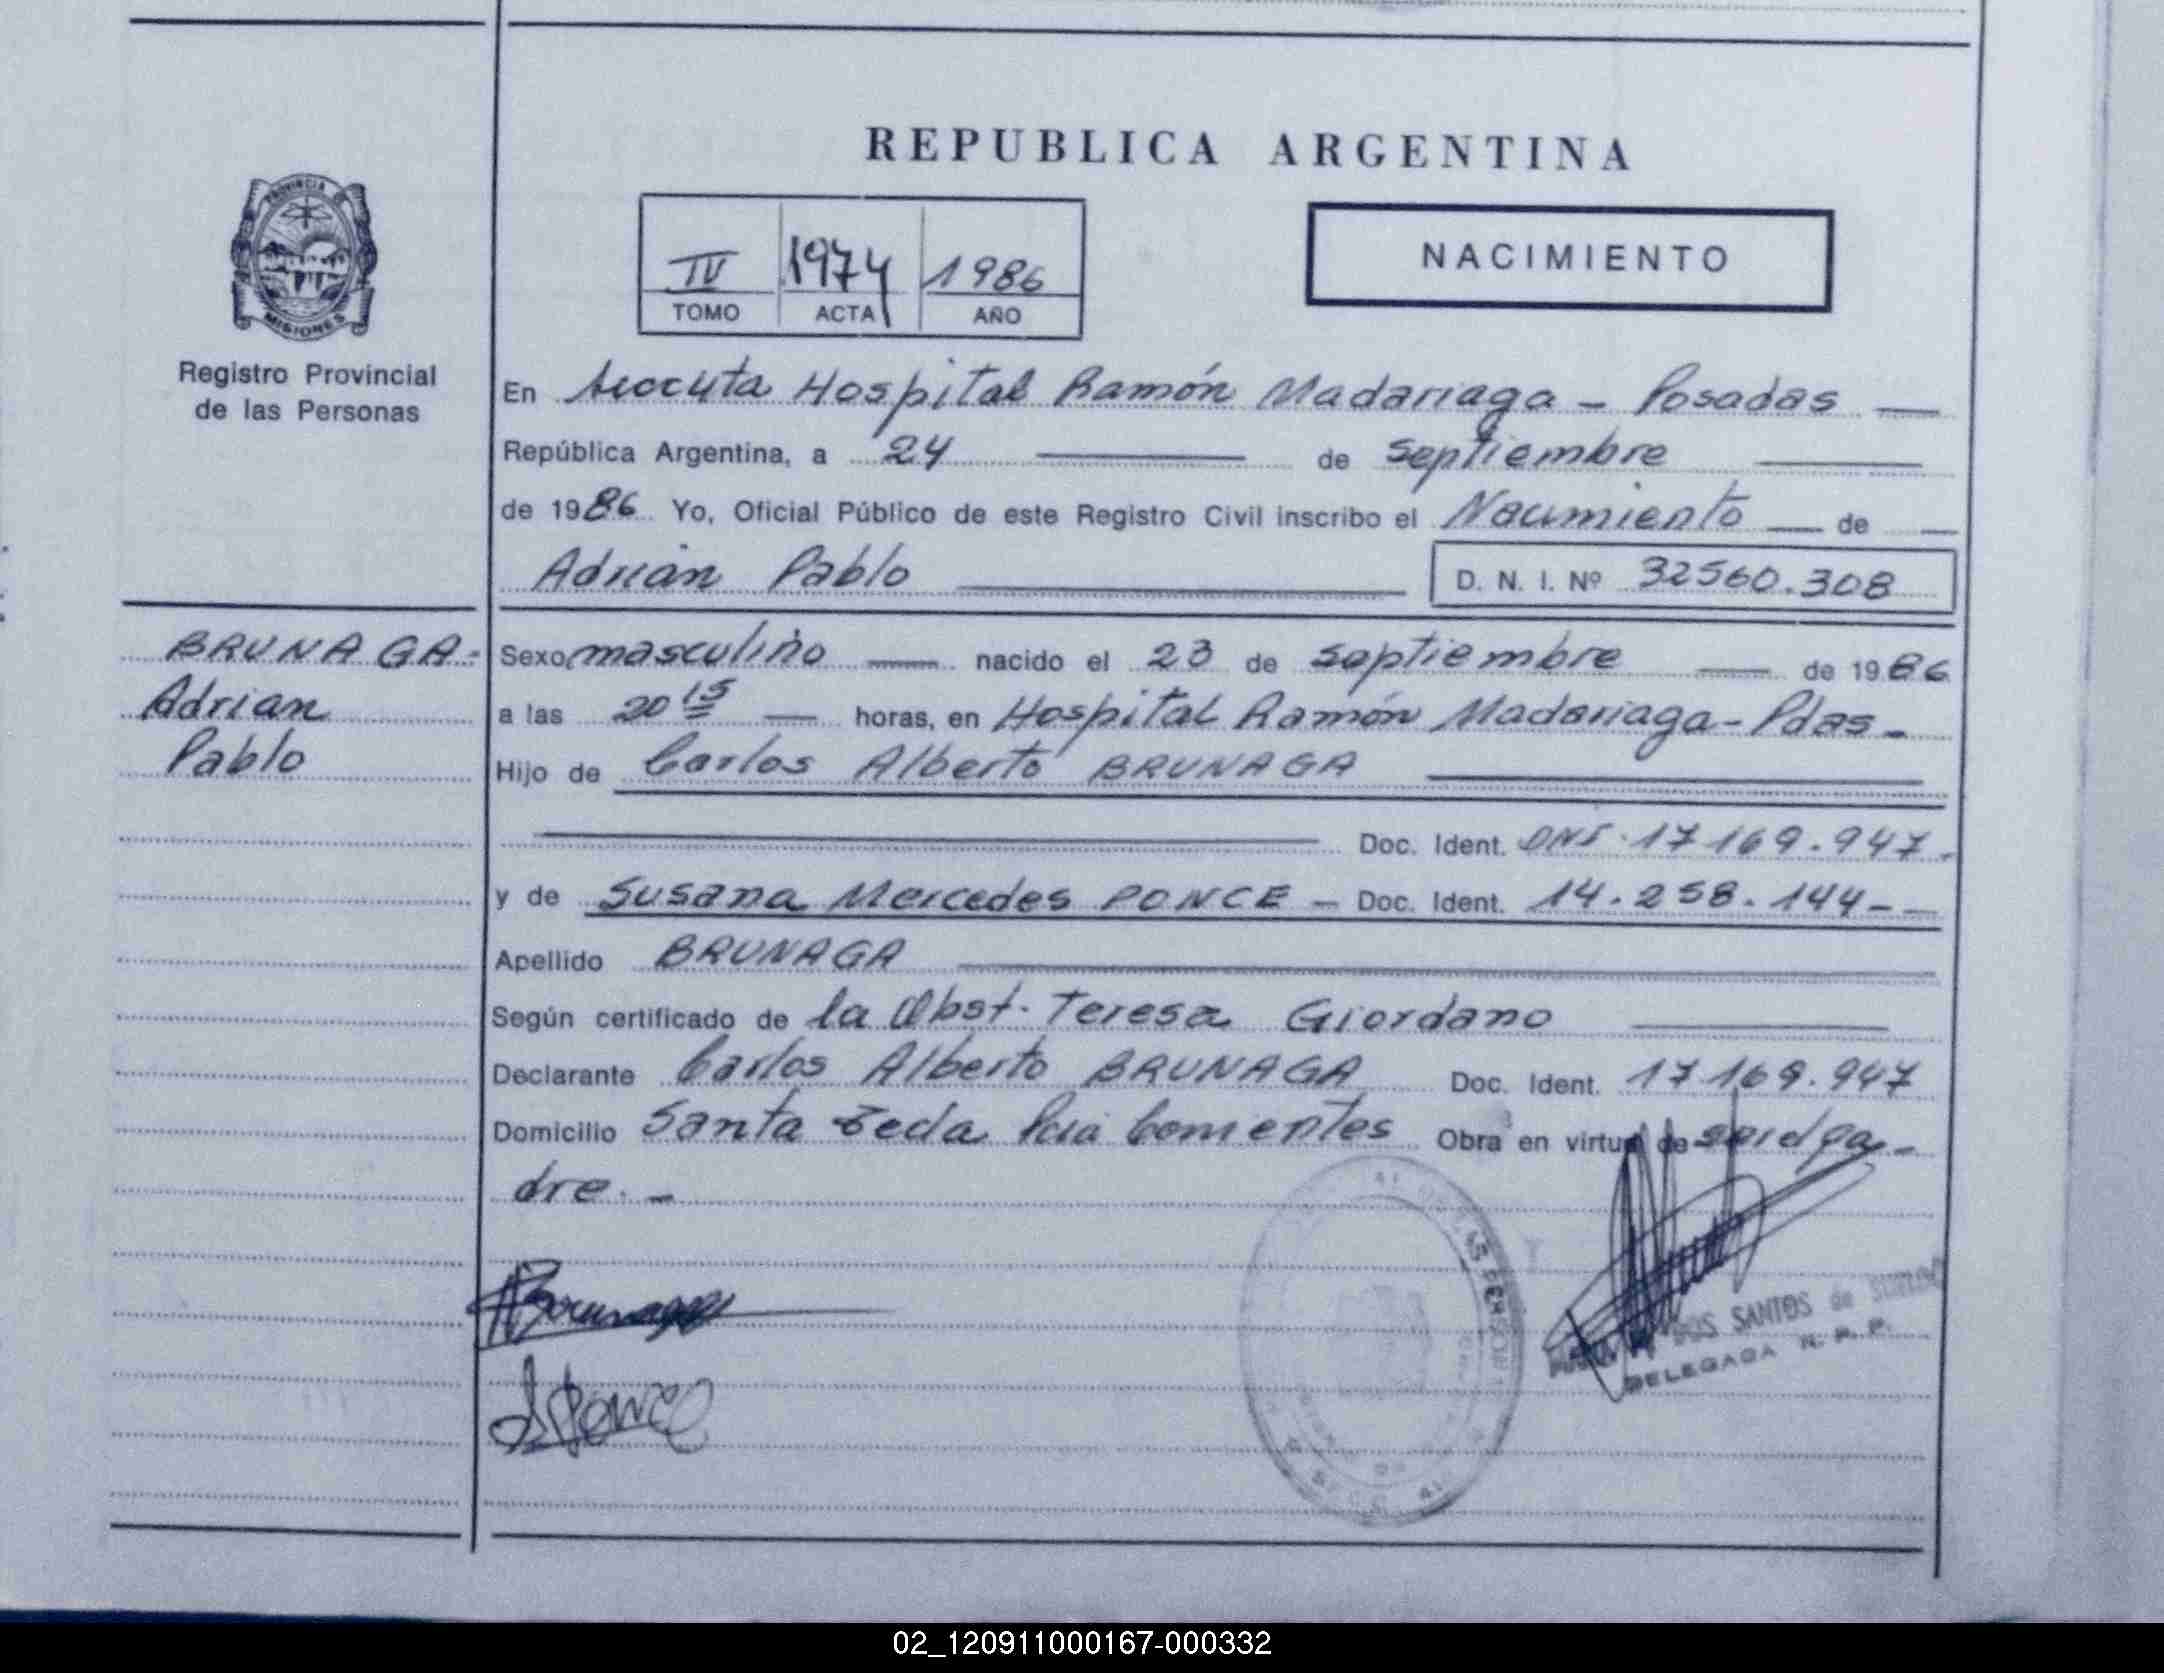 REPUBLICA ARGENTINA
PROVINCIA DE
MISIONES
Registro Provincial
de las Personas
IV 1974 1986
TOMO ACTA AÑO
NACIMIENTO
En Hospital Ramón Madariaga - Posadas
República Argentina, a 24 de septiembre
de 1986 Yo, Oficial Público de este Registro Civil inscribo el Nacimiento de
Adrian Pablo D. N. I. Nº 32560.308
BRUNAGA-
Adrian
Pablo
Sexo masculino nacido el 23 de septiembre de 1986
a las 20 15 horas, en Hospital Ramón Madariaga - Pdas -
Hijo de Carlos Alberto BRUNAGA
Doc. Ident. DNI. 17169.947.
y de Susana Mercedes PONCE - Doc. Ident. 14.258.144 -
Apellido BRUNAGA
Según certificado de la Obst. Teresa Giordano
Declarante Carlos Alberto BRUNAGA Doc. Ident. 17169.947
Domicilio Santa Pcia Corrientes Obra en virtud de
dre. -
Brunaga
Ponce
DOS SANTOS de
DELEGADA R. P. P.
02_120911000167-000332